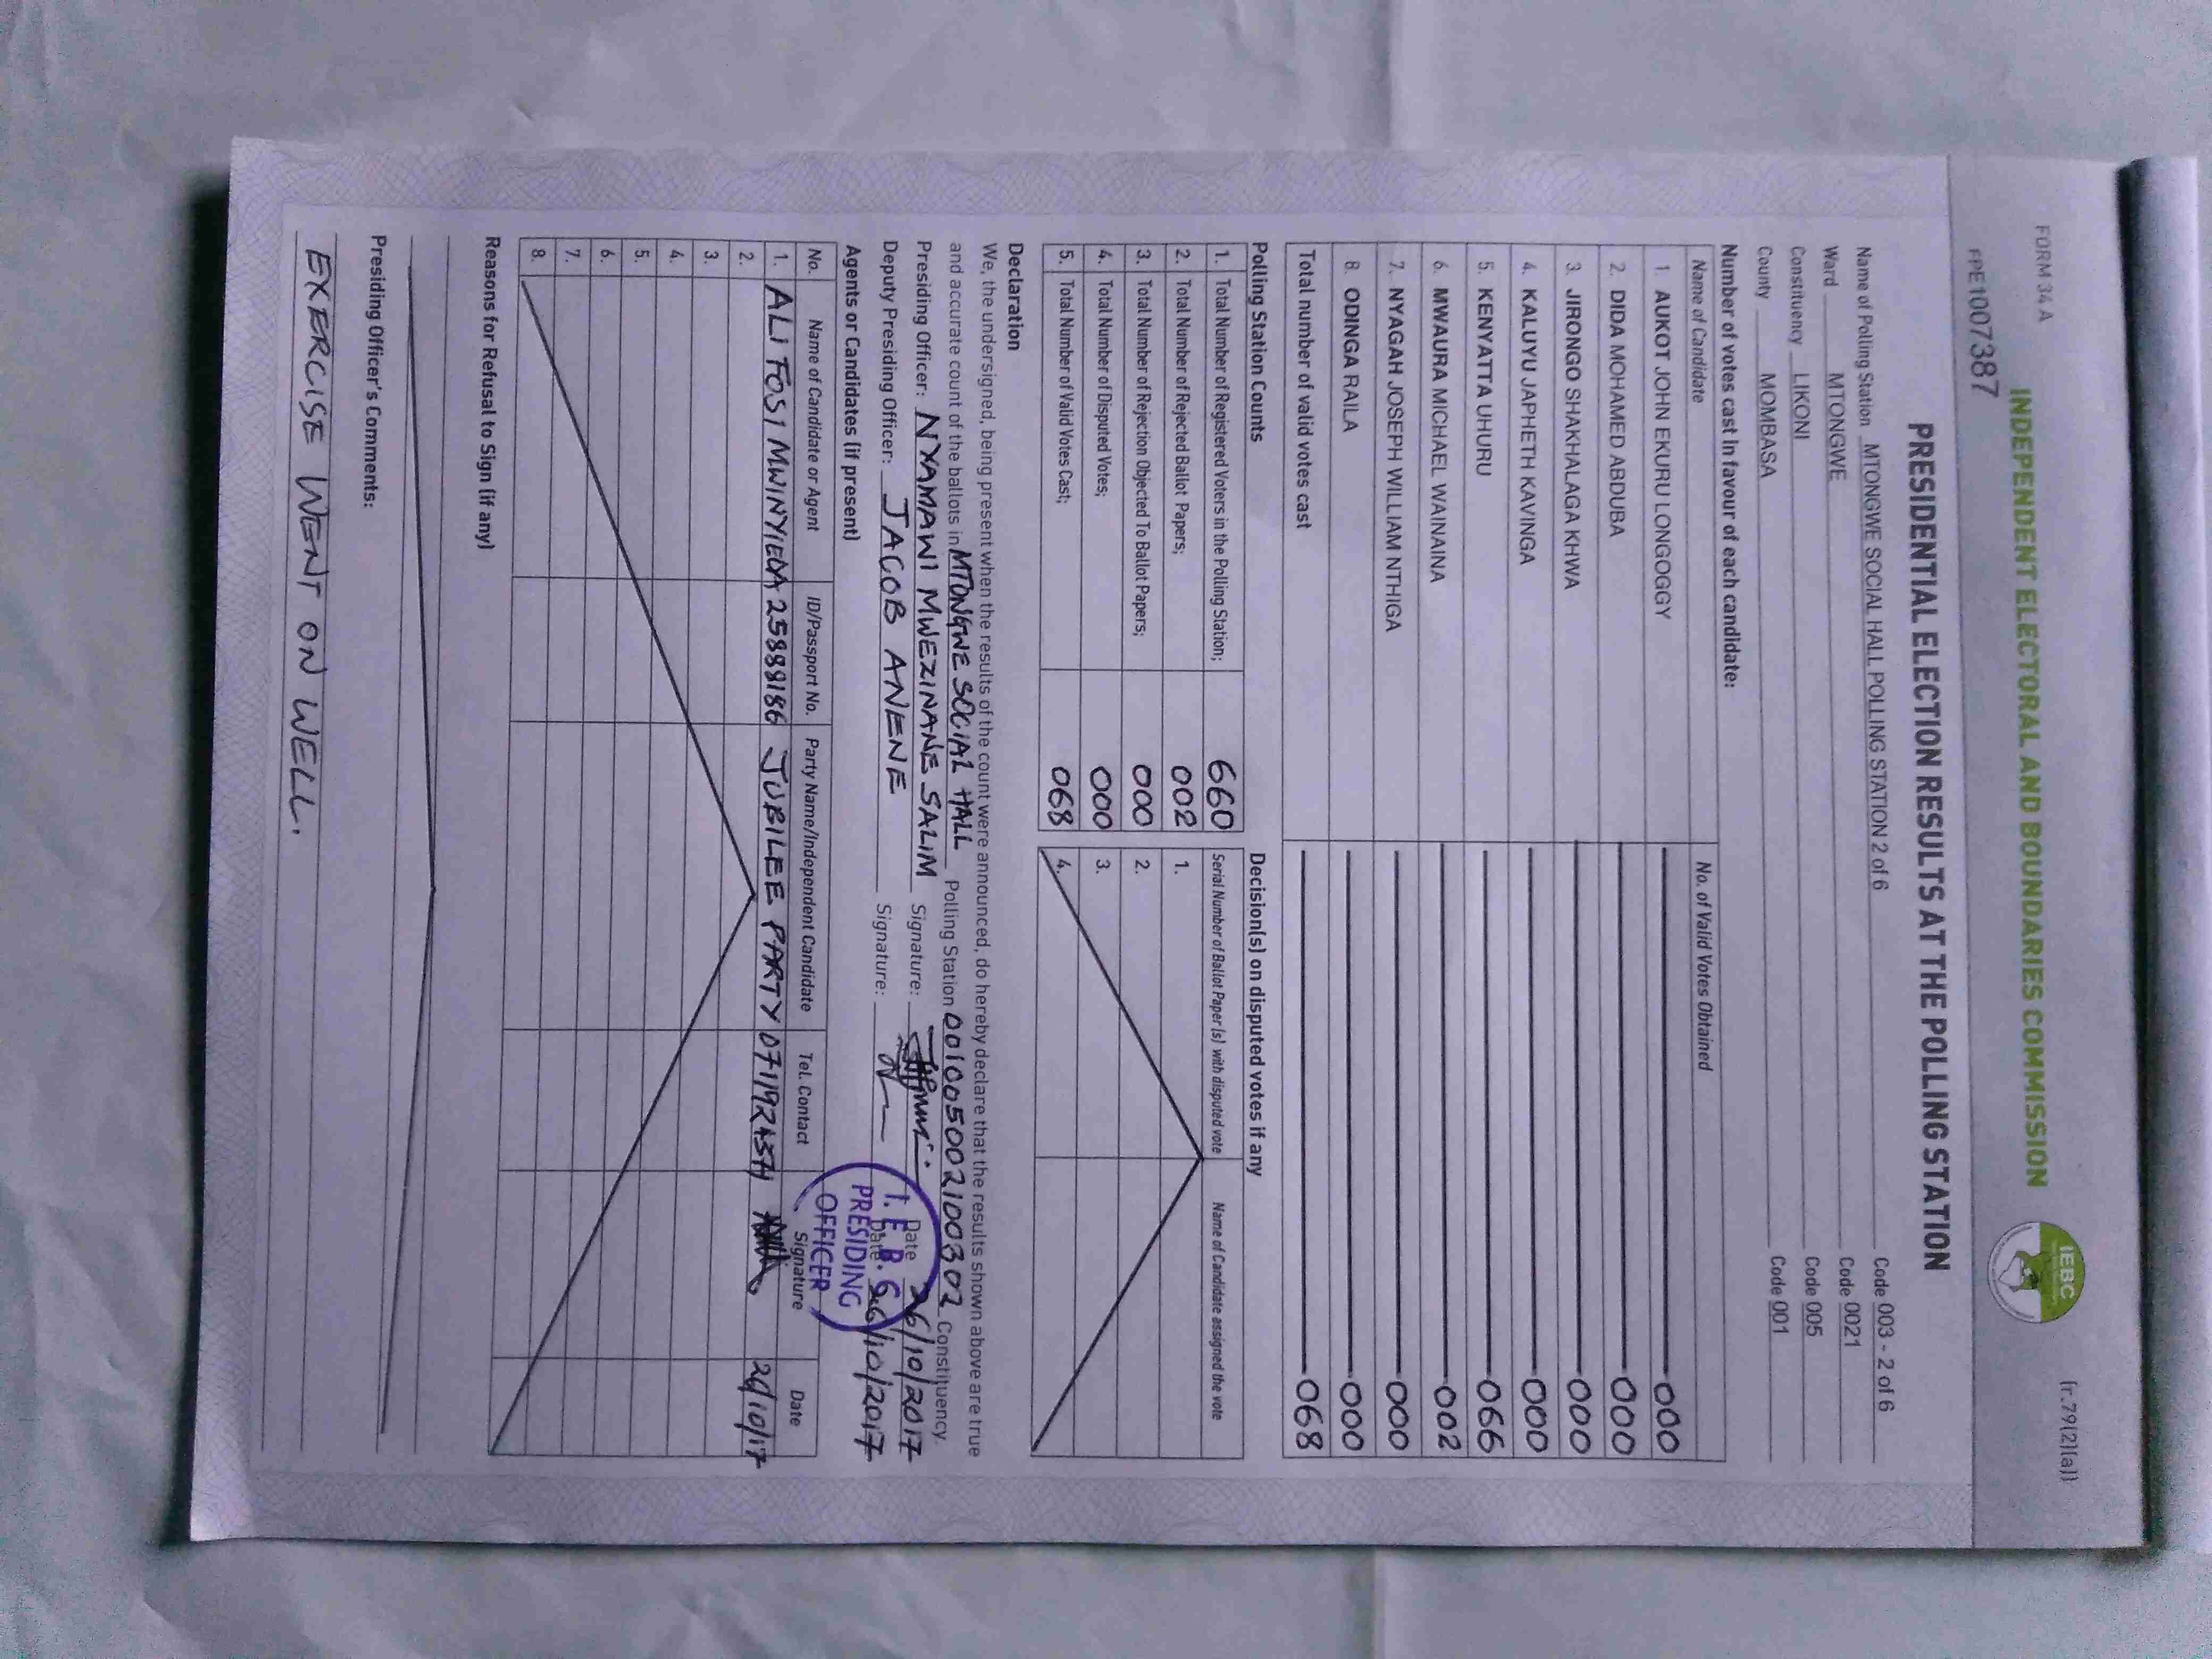 FORM 34 A
(r.79(2)(a))
INDEPENDENT ELECTORAL AND BOUNDARIES COMMISSION
IEBC
FPE1007387
PRESIDENTIAL ELECTION RESULTS AT THE POLLING STATION
Name of Polling Station MTONGWE SOCIAL HALL POLLING STATION 2 of 6 Code 003 - 2 of 6
Ward MTONGWE Code 0021
Constituency LIKONI Code 005
County MOMBASA Code 001
Number of votes cast In favour of each candidate:
Name of Candidate No. of Valid Votes Obtained
1. AUKOT JOHN EKURU LONGOGGY 000
2. DIDA MOHAMED ABDUBA 000
3. JIRONGO SHAKHALAGA KHWA 000
4. KALUYU JAPHETH KAVINGA 000
5. KENYATTA UHURU 066
6. MWAURA MICHAEL WAINAINA 002
7. NYAGAH JOSEPH WILLIAM NTHIGA 000
8. ODINGA RAILA 000
Total number of valid votes cast 068
Polling Station Counts
1. Total Number of Registered Voters in the Polling Station; 660
2. Total Number of Rejected Ballot Papers; 002
3. Total Number of Rejection Objected To Ballot Papers; 000
4. Total Number of Disputed Votes; 000
5. Total Number of Valid Votes Cast; 068
Decision(s) on disputed votes if any
Serial Number of Ballot Paper (s) with disputed vote Name of Candidate assigned the vote
1.
2.
3.
4.
Declaration
We, the undersigned, being present when the results of the count were announced, do hereby declare that the results shown above are true
and accurate count of the ballots in MTONGWE SOCIAL HALL Polling Station 001005002100302 Constituency.
Presiding Officer: NYAMAWI MWEZINANE SALIM Signature: Date 26/10/2017
Deputy Presiding Officer: JACOB ANENE Signature: Date 26/10/2017
I. E. B. C
PRESIDING
OFFICER
Agents or Candidates (if present)
No. Name of Candidate or Agent ID/Passport No. Party Name/Independent Candidate Tel. Contact Signature Date
1. ALI FOSI 25888186 JUBILEE PARTY 26/10/17
2.
3.
4.
5.
6.
7.
8.
Reasons for Refusal to Sign (if any)
Presiding Officer's Comments:
EXERCISE WENT ON WELL.